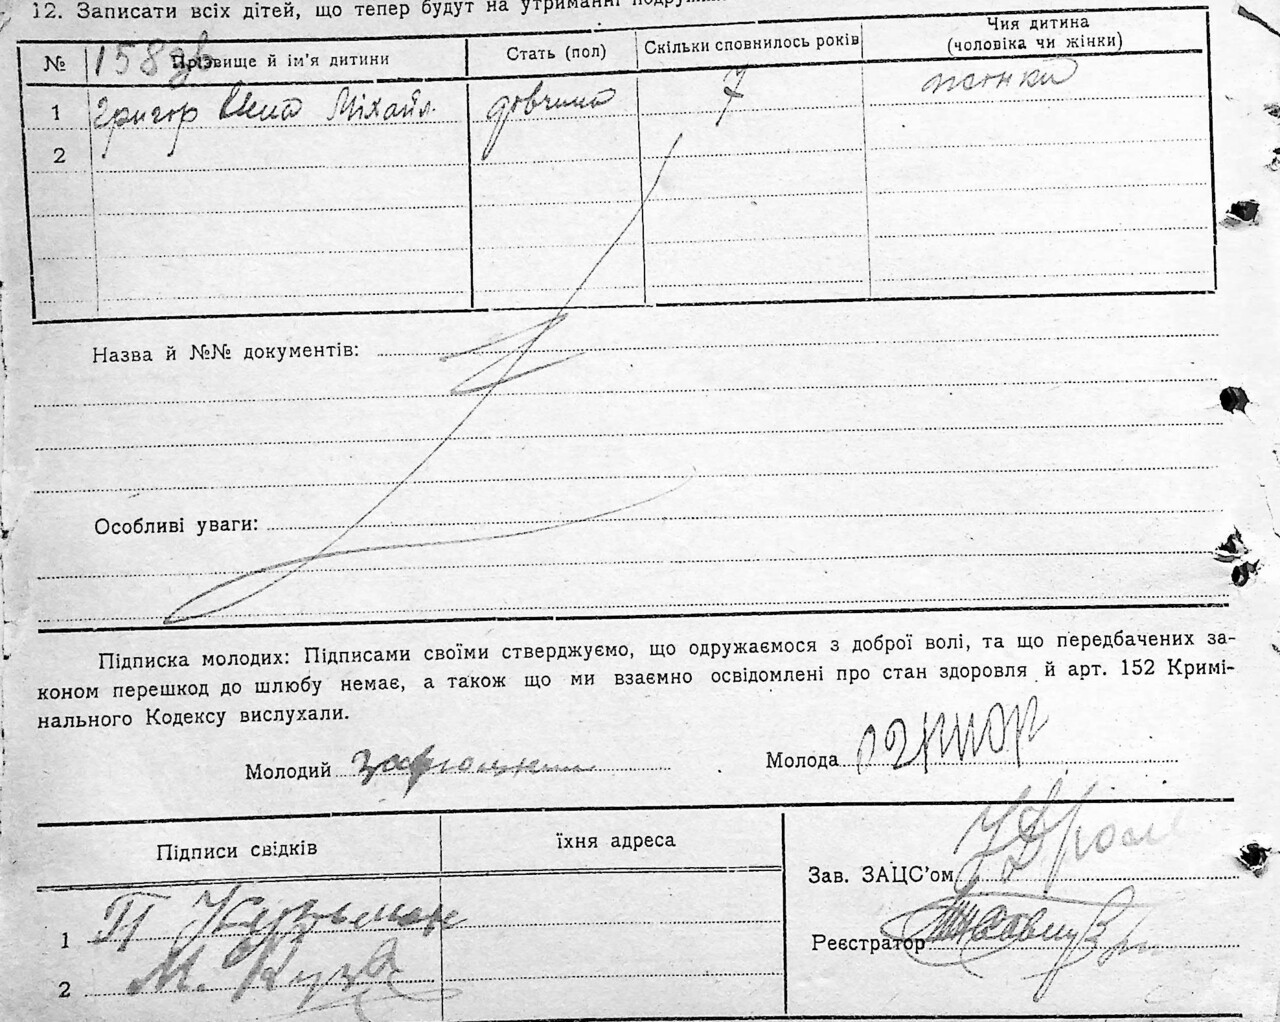 12. Записати всіх дітей, що тепер будут на утриманні
№ Прізвище й ім'я дитини Стать (пол) Скільки сповнилось років Чия дитина (чоловіка чи жінки)
158
1 Григор Міхайл. довчина 7 жонки
2
Назва й №№ документів:
Особливі уваги:
Підписка молодих: Підписами своїми стверджуємо, що одружаємося з доброї волі, та що передбачених за-
коном перешкод до шлюбу немає, а також що ми взаємно освідомлені про стан здоровля й арт. 152 Кримі-
нального Кодексу вислухали.
Молодий
Молода Григор
Підписи свідків їхня адреса
Зав. ЗАЦС'ом
1 П Кузьмен
Реєстратор
2 М. Куза